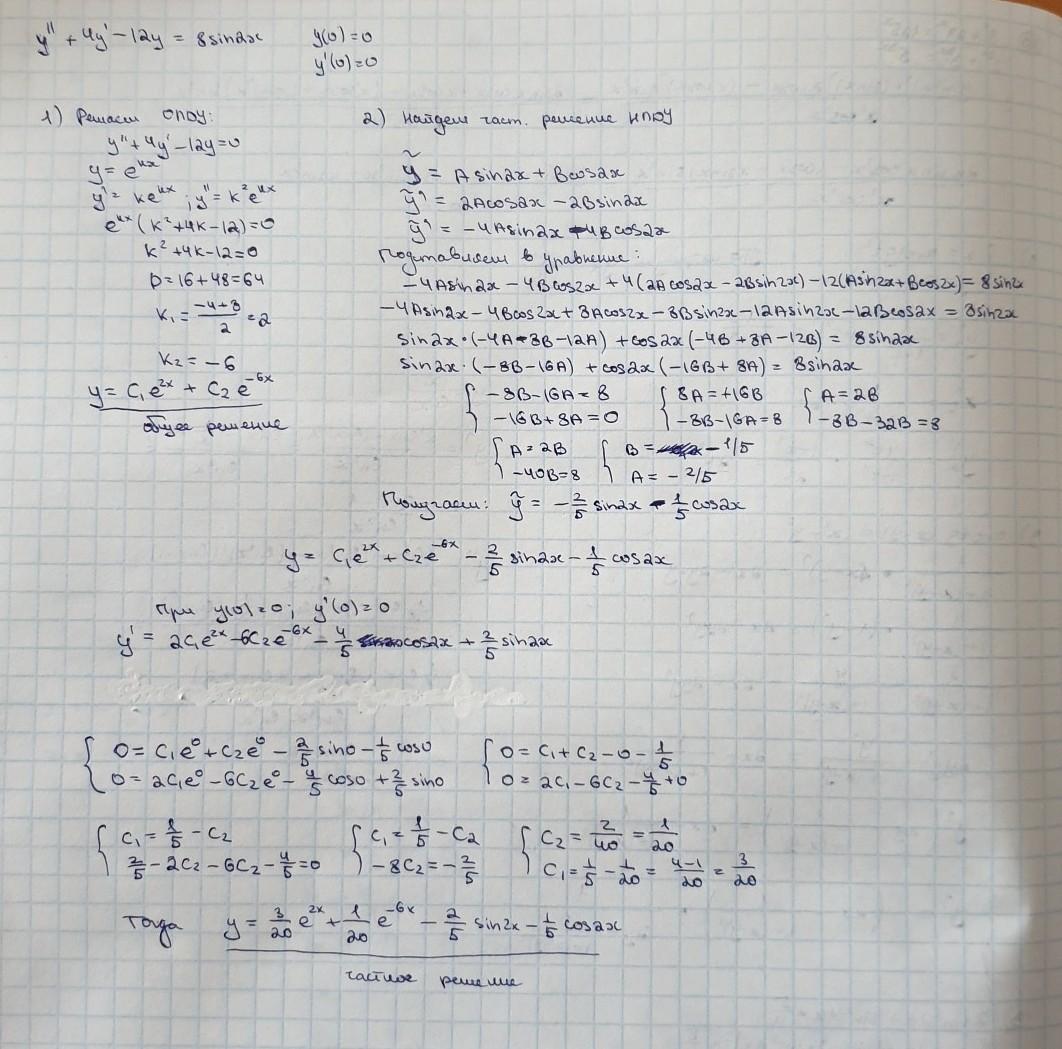 y'' + 4y' − 12y = 8sin2x    y(0)=0
y'(0)=0
1) Решаем ОЛОУ:
y''+4y'−12y=0
y = e^{kx}
y' = ke^{kx}; y''=k²e^{kx}
e^{kx}(k²+4k−12)=0
k²+4k−12=0
D=16+48=64
k₁ = (−4+8)/2 = 2
k₂ = −6
y = C₁e^{2x} + C₂e^{−6x}
общее решение
2) Найдем част. решение НЛОУ
ỹ = Asin2x + Bcos2x
ỹ' = 2Acos2x − 2Bsin2x
ỹ'' = −4Asin2x − 4Bcos2x
Подставляем в уравнение:
−4Asin2x − 4Bcos2x + 4(2Acos2x − 2Bsin2x) − 12(Asin2x + Bcos2x) = 8sin2x
−4Asin2x − 4Bcos2x + 8Acos2x − 8Bsin2x − 12Asin2x − 12Bcos2x = 8sin2x
sin2x·(−4A − 8B − 12A) + cos2x(−4B + 8A − 12B) = 8sin2x
sin2x·(−8B − 16A) + cos2x(−16B + 8A) = 8sin2x
{ −8B−16A = 8    { 8A = +16B    { A = 2B
−16B+8A = 0    −8B−16A = 8    −8B−32B = 8
{ A = 2B    { B = −1/5
−40B = 8    A = −2/5
Получаем: ỹ = −2/5 sin2x − 1/5 cos2x
y = C₁e^{2x} + C₂e^{−6x} − 2/5 sin2x − 1/5 cos2x
При y(0)=0; y'(0)=0
y' = 2C₁e^{2x} − 6C₂e^{−6x} − 4/5 cos2x + 2/5 sin2x
{ 0 = C₁e⁰ + C₂e⁰ − 2/5 sin0 − 1/5 cos0    { 0 = C₁ + C₂ − 0 − 1/5
0 = 2C₁e⁰ − 6C₂e⁰ − 4/5 cos0 + 2/5 sin0    0 = 2C₁ − 6C₂ − 4/5 + 0
{ C₁ = 1/5 − C₂    { C₁ = 1/5 − C₂    { C₂ = 2/40 = 1/20
2/5 − 2C₂ − 6C₂ − 4/5 = 0    −8C₂ = −2/5    C₁ = 1/5 − 1/20 = (4−1)/20 = 3/20
Тогда y = 3/20 e^{2x} + 1/20 e^{−6x} − 2/5 sin2x − 1/5 cos2x
частное решение